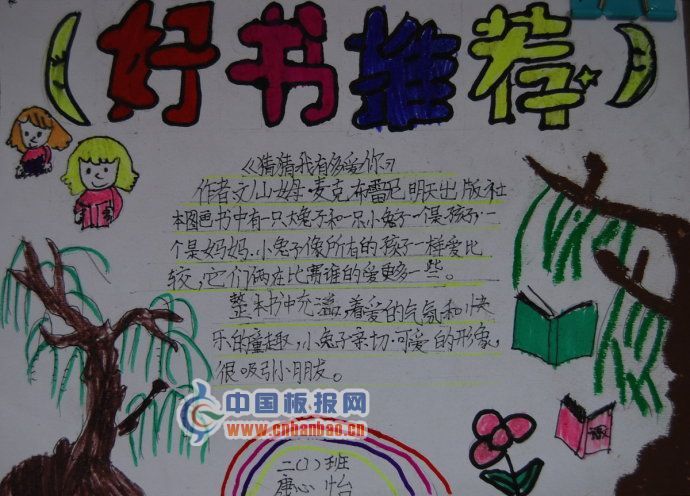 好书推荐
《猜猜我有多爱你》
作者:文/山姆·麦克布雷尼 明天出版社
本图画书中有一只大兔子和一只小兔子一个是孩子,一
个是妈妈.小兔子像所有的孩子一样爱比
较,它们俩在比赛谁的爱更多一些。
整本书中充溢着爱的气氛和快
乐的童趣,小兔子亲切.可爱的形象,
很吸引小朋友。
中国板报网
www.cnbanbao.cn
二(1)班
唐心怡